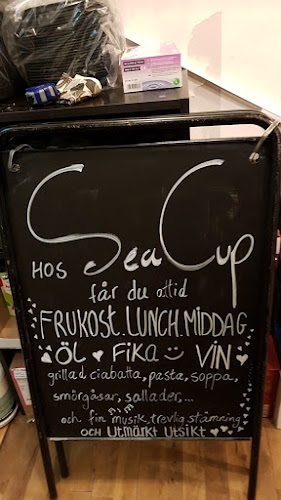 Sea Cup
HOS
får du alltid
FRUKOST. LUNCH. MIDDAG
ÖL ♥ FIKA VIN
grillad ciabatta, pasta, soppa,
smörgåsar, sallader,...
och fin musik, trevlig stämning
OCH UTMÄRKT UTSIKT